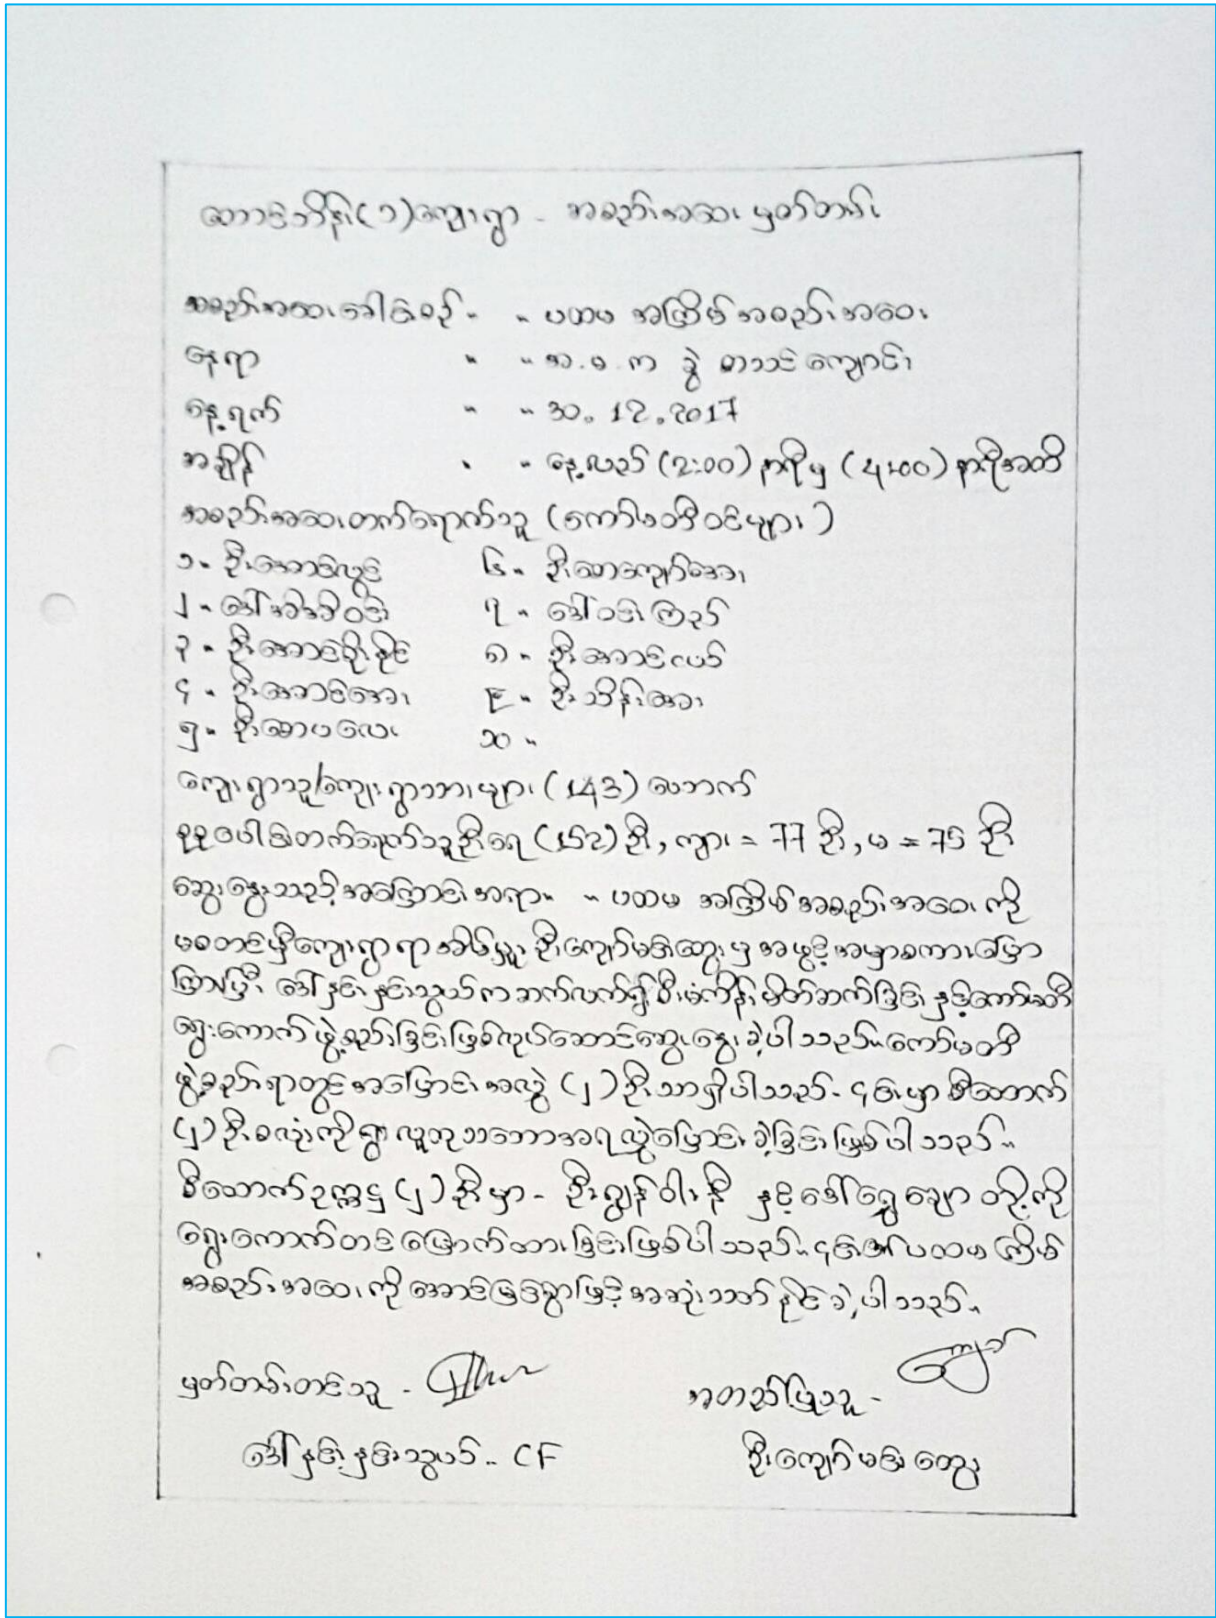 တောင်ဘိန်း(၁)ကျေးရွာ - အစည်းအဝေး မှတ်တမ်း
အစည်းအဝေးခေါင်းစဉ် " " ပထမ အကြိမ် အစည်းအဝေး
နေရာ " " အ.မ.က ခွဲ စာသင်ကျောင်း
နေ့ရက် " " 30.12.2017
အချိန် " " နေ့လည် (2:00) နာရီမှ (4:00) နာရီအထိ
အစည်းအဝေးတက်ရောက်သူ (ကော်မတီဝင်များ)
၁" ဦးအောင်လွင် ၆" ဦးစောကျော်အေး
၂" ဒေါ်အိအိဝင်း ၇" ဒေါ်ဝင်းကြည်
၃" ဦးအောင်စိုးနိုင် ၈" ဦးအောင်
၄" ဦးအောင်အေး ၉" ဦးသိန်းအေး
၅" ဦးစောဖလေး ၁၀"
ကျေးရွာသူ/ကျေးရွာသားများ (143) ယောက်
စုစုပေါင်းတက်ရောက်သူဦးရေ (152) ဦး, ကျား = 77 ဦး, မ = 75 ဦး
ဆွေးနွေးသည့်အကြောင်းအရာ" " ပထမ အကြိမ်အစည်းအဝေး ကို
မစတင်မှီကျေးရွာရာအိမ်မှူး ဦးကျော်မင်းထွေးမှ အဖွင့်အမှာစကားပြော
ကြားပြီး ဒေါ်နှင်းနှင်းသွယ်က ဆက်လက်၍ စီမံကိန်းမိတ်ဆက်ခြင်း နှင့်ကော်မတီ
ရွေးကောက်ဖွဲ့စည်းခြင်းဖြစ်လုပ်ဆောင်ဆွေးနွေးခဲ့ပါသည်။ကော်မတီ
ဖွဲ့စည်းရာတွင်အပြောင်းအလွဲ (၂) ဦးသာရှိပါသည်- ၄င်းမှာ စီထောက်
(၂) ဦးစလုံးကိုရွာလူထုသဘောအရလွှဲပြောင်းခဲ့ခြင်းဖြစ်ပါသည်။
စီထောက်ဥက္ကဋ္ဌ (၂) ဦးမှာ- ဦးရွှန်ဝါးနီ နှင့်ဒေါ်ရွှေချော တို့ကို
ရွေးကောက်တင်မြှောက်ထားခြင်းဖြစ်ပါသည်။ ၄င်းအပ်ပထမကြိမ်
အစည်းအဝေးကိုအောင်မြင်စွာဖြင့်အဆုံးသတ်နိုင်ခဲ့ပါသည်။
မှတ်တမ်းတင်သူ - အတည်ပြုသူ -
ဒေါ်နှင်းနှင်းသွယ်.. CF ဦးကျော်မင်းထွေး